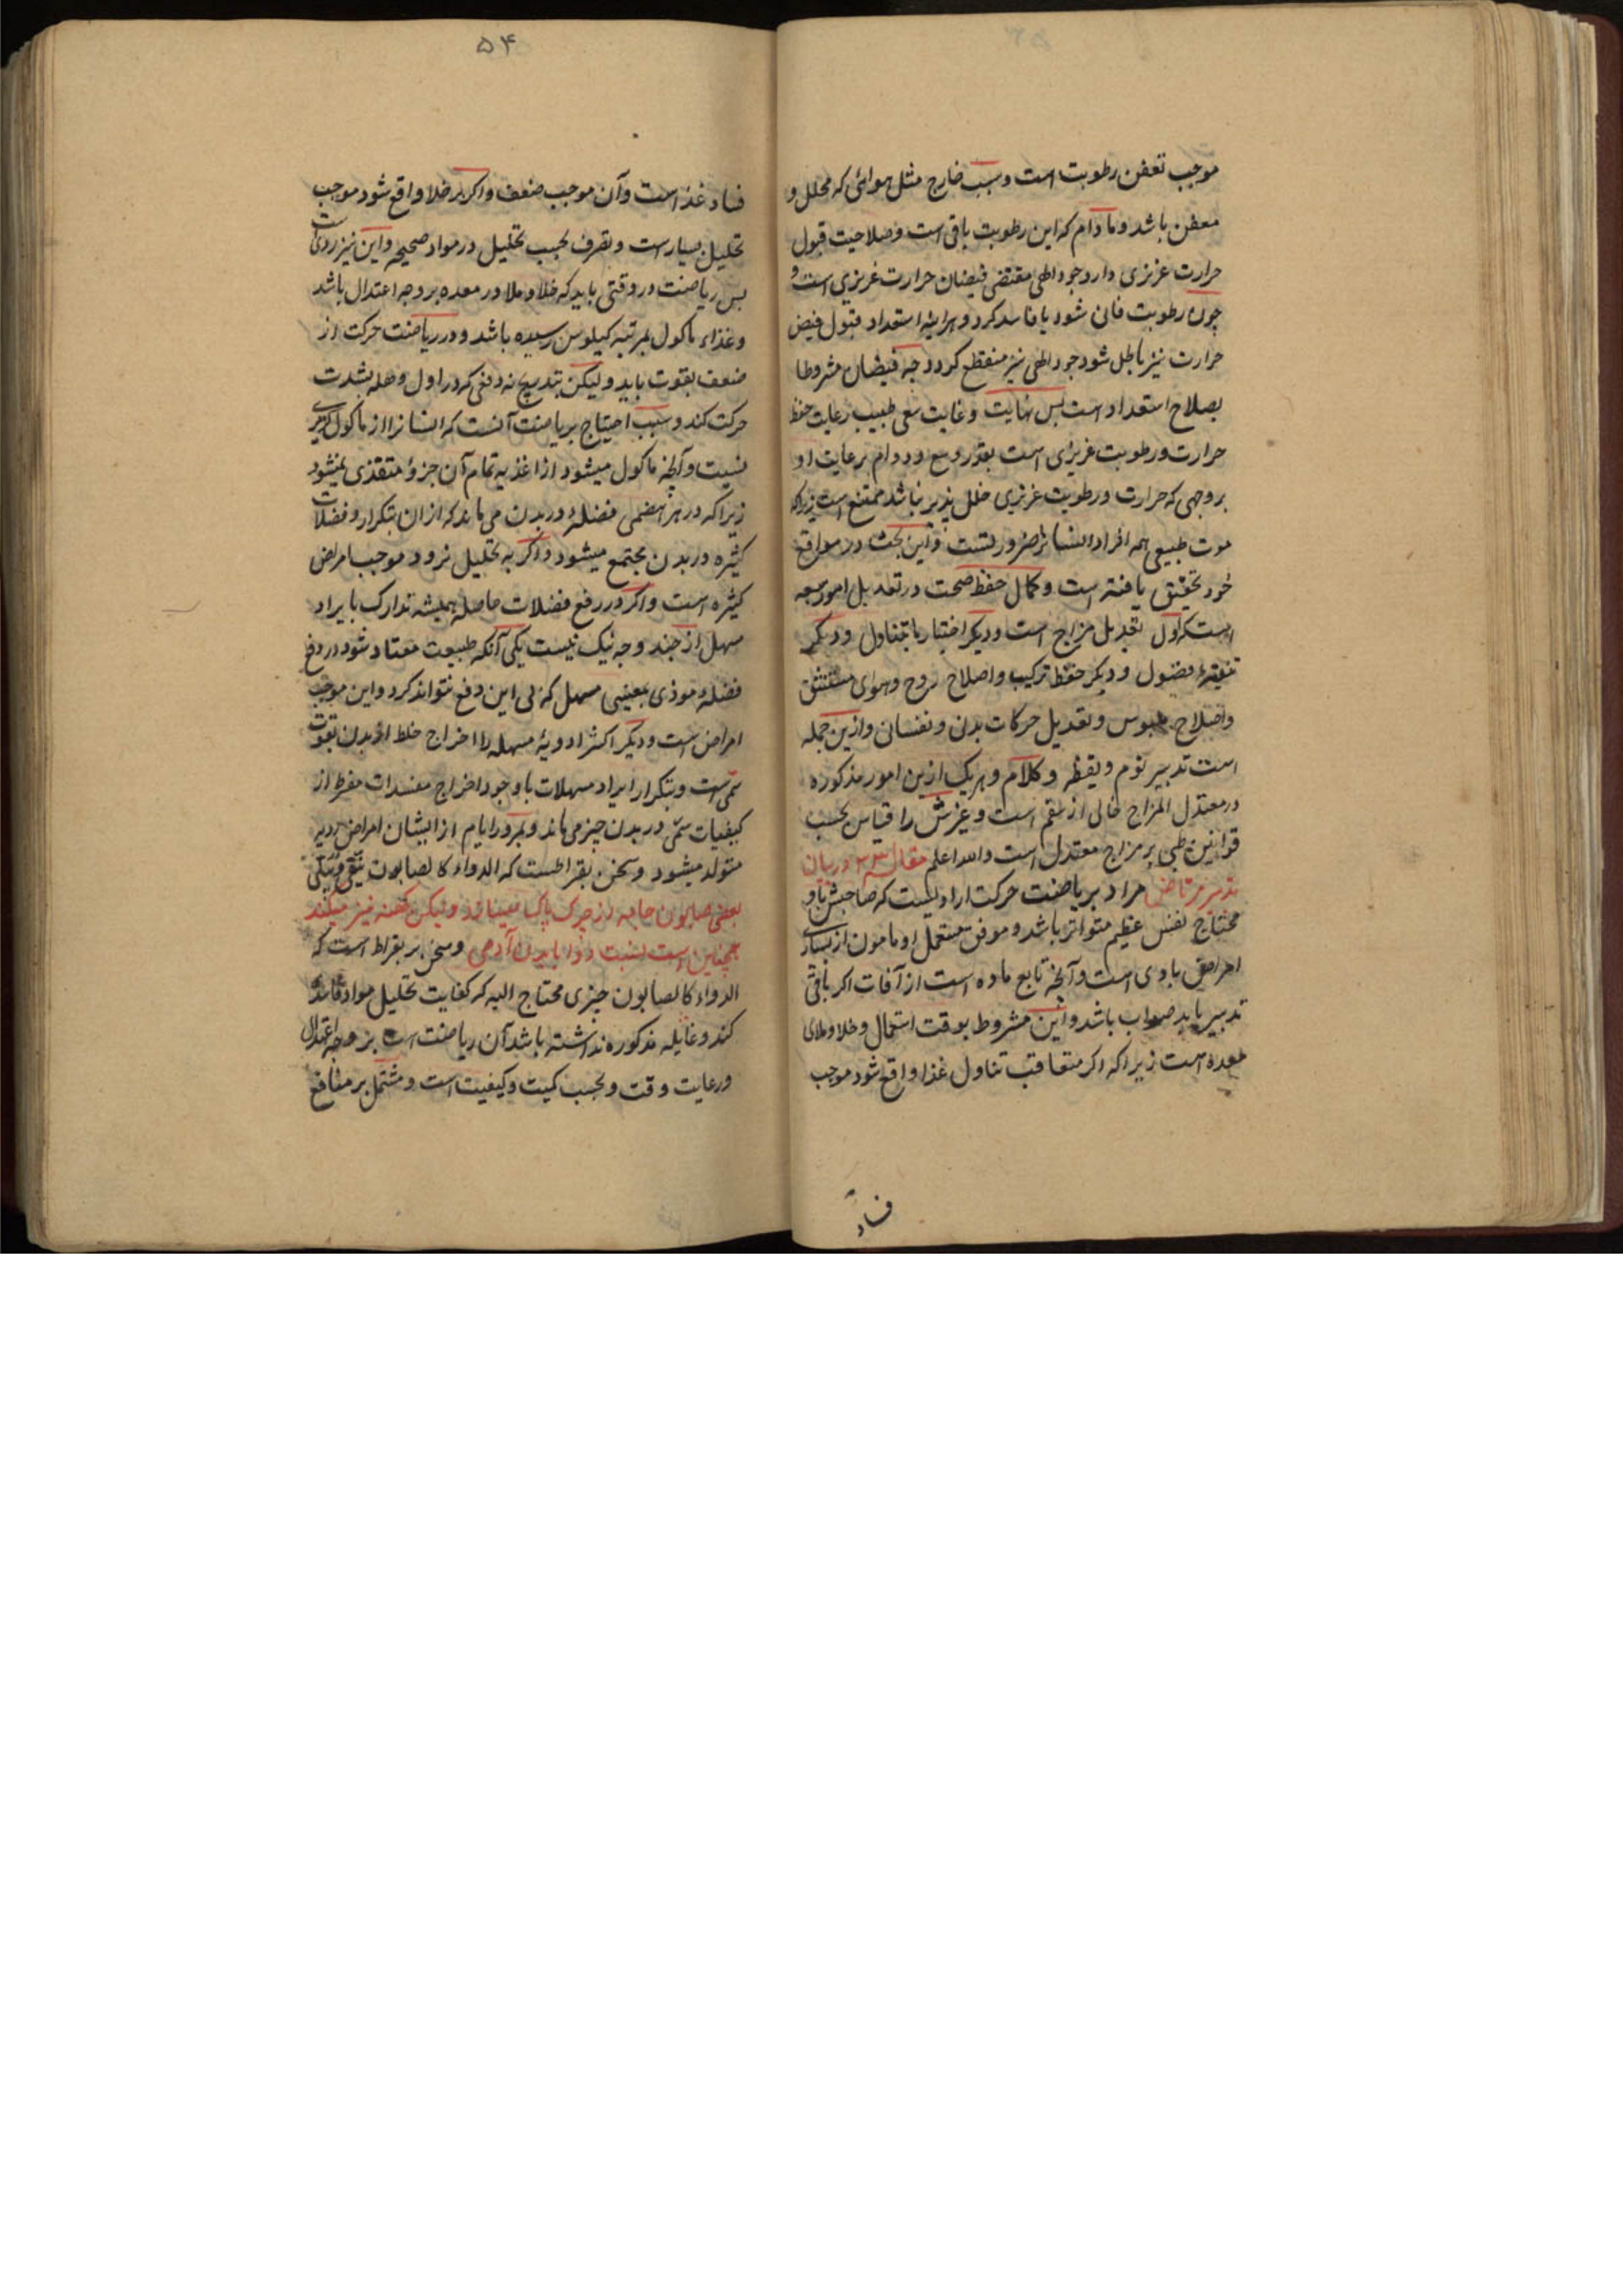 موجب تعفن رطوبت است و سبب خارج مثل هوائی که محلل و
معفن باشد و مادام که این رطوبت باقی است و صلاحیت قبول
حرارت غریزی دارد جود الهی مقتضی فیضان حرارت غریزی است و
چون رطوبت فانی شود یا فاسد کردد هراینه استعداد قبول فیض
حرارت نیز باطل شود جود الهی نیز منقطع کردد چه فیضان مشروط
بصلاح استعداد است بس نهایت و غایت سعی طبیب رعایت حفظ
حرارت و رطوبت غریزی است بقدر وسع و دوام رعایت او
بر وجهی که حرارت و رطوبت غریزی خلل پذیر نباشد ممتنع است زیراکه
موت طبیعی همه افراد انسانرا ضروریست و این بحث در مواقع
خود تحقیق یافته است و کمال حفظ صحت در تعدیل امور سبعه
است که اول تعدیل مزاج است و دیکر اختیار ما یتناول و دیکر
تنقیهٔ فضول و دیکر حفظ ترکیب و اصلاح روح و هوای مستنشق
و اصلاح ملبوس و تعدیل حرکات بدن و نفسان و ازین جمله
است تدبیر نوم و یقظه و کلام و هریک ازین امور مذکوره
در معتدل المزاج خالی از سقم است و غیرش را قیاس بحسب
قوانین طبی بر مزاج معتدل است والله اعلم مقاله ۲۳ در بیان
تدبیر مراد بریاضت حرکت ارادیست که صاحبش باو
محتاج نفس عظیم متواتر باشد و موفق مستعمل او مامون از بسیاری
امراض مادی است و آنچه تابع ماده است از آفات اکر باقی
تدبیر باید صواب باشد و این مشروط بوقت استعمال و خلا و ملای
معده است زیراکه اکر متعاقب تناول غذا واقع شود موجب
فساد
۵۴
فساد غذاست و آن موجب ضعف و اکر بر خلا واقع شود موجب
تحلیل بسیارست و تصرف بحسب تحلیل در مواد صحیحه و این نیز ردی است
بس ریاضت در وقتی باید که خلا و ملا در معده بر وجه اعتدال باشد
و غذاء ماکول بمرتبه کیلوس رسیده باشد و در ریاضت حرکت از
ضعف بقوت باید و لیکن بتدریج نه دفعی که در اول وهله بشدت
حرکت کند و سبب احتیاج بریاضت آنست که انسانرا از ماکول کزیر
نیست و آنچه ماکول میشود از اغذیه تمام آن جزؤ متغذی نمیشود
زیراکه در هر هضمی فضلهٔ در بدن می ماند که از ان بتکرار و فضلات
کثیره در بدن مجتمع میشود و اکر به تحلیل نرود موجب امراض
کثیره است و اکر در رفع فضلات حاصله همیشه تدارک بایراد
مسهل از چند وجه نیک نیست یکی آنکه طبیعت معتاد شود در دفع
فضلهٔ موذی بمعینی مسهل که بی این دفع نتواند کرد و این موجب
امراض است و دیکر اکثر ادویهٔ مسهله را اخراج خلط از بدن بقوت
سمی است و بتکرار ایراد مسهلات با وجود اخراج مفسدات مفرط از
کیفیات سمی در بدن چیزی ماند و بمرور ایام از ایشان امراض ردیه
متولد میشود و سخن بقراطست که الدواء کالصابون ینقی و یبلی
یعنی صابون جامه را از چرک پاک میسازد و لیکن کهنه نیز میکند
همچنین است نسبت دوا با بدن آدمی و سخن بر بقراط است که
الدواء کالصابون چیزی محتاج الیه که کفایت تحلیل مواد فاسده
کند و غایله مذکوره نداشته باشد آن ریاضت است بر وجه اعتدال
و رعایت وقت و بحسب کمیت و کیفیت است و مشتمل بر منافع